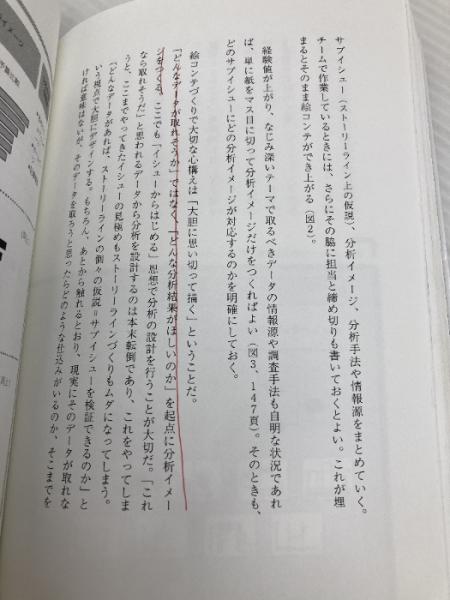 サブイシュー（ストーリーライン上の仮説）、分析イメージ、分析手法や情報源をまとめていく。
チームで作業しているときには、さらにその脇に担当と締め切りも書いておくとよい。これが埋
まるとそのまま絵コンテができ上がる（図2）。
経験値が上がり、なじみ深いテーマで取るべきデータの情報源や調査手法も自明な状況であれ
ば、単に紙をマス目に切って分析イメージだけをつくればよい（図3、147頁）。そのときも、
どのサブイシューにどの分析イメージが対応するのかを明確にしておく。
絵コンテづくりで大切な心構えは「大胆に思い切って描く」ということだ。
「どんなデータが取れそうか」ではなく、「どんな分析結果がほしいのか」を起点に分析イメー
ジをつくる。ここでも「イシューからはじめる」思想で分析の設計を行うことが大切だ。「これ
なら取れそうだ」と思われるデータから分析を設計するのは本末転倒であり、これをやってしま
うと、ここまでやってきたイシューの見極めもストーリーラインづくりもムダになってしまう。
「どんなデータがあれば、ストーリーラインの個々の仮説＝サブイシューを検証できるのか」と
いう視点で大胆にデザインする。もちろん、あとから触れるとおり、現実にそのデータが取れな
ければ意味はないが、そのデータを取ろうと思ったらどのような仕込みがいるのか、そこまでを
イメージ